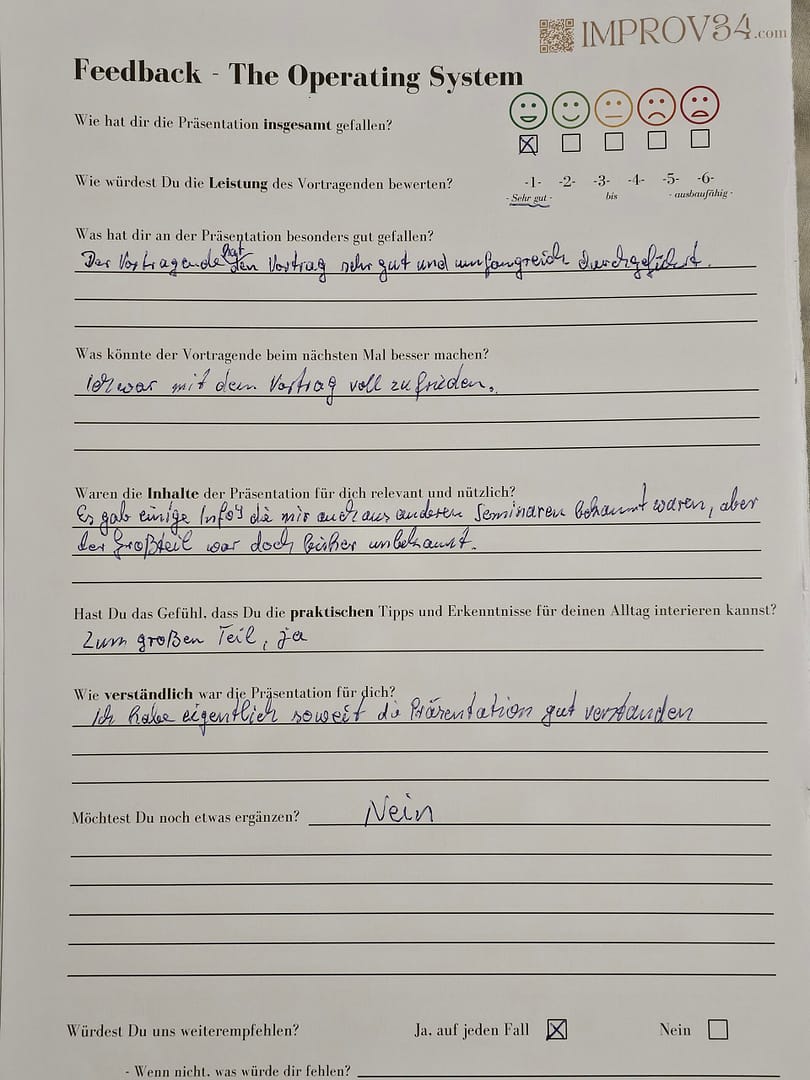 IMPROV34.com
Feedback - The Operating System
Wie hat dir die Präsentation insgesamt gefallen?
Wie würdest Du die Leistung des Vortragenden bewerten? -1- -2- -3- -4- -5- -6-
- Sehr gut - bis - ausbaufähig -
Was hat dir an der Präsentation besonders gut gefallen?
Der Vortragende hat den Vortrag sehr gut und umfangreich durchgeführt.
Was könnte der Vortragende beim nächsten Mal besser machen?
Ich war mit dem Vortrag voll zufrieden.
Waren die Inhalte der Präsentation für dich relevant und nützlich?
Es gab einige Info's die mir auch aus anderen Seminaren bekannt waren, aber
der Großteil war doch bisher unbekannt.
Hast Du das Gefühl, dass Du die praktischen Tipps und Erkenntnisse für deinen Alltag interieren kannst?
Zum großen Teil, ja
Wie verständlich war die Präsentation für dich?
Ich habe eigentlich soweit die Präsentation gut verstanden
Möchtest Du noch etwas ergänzen? Nein
Würdest Du uns weiterempfehlen? Ja, auf jeden Fall Nein
- Wenn nicht, was würde dir fehlen?